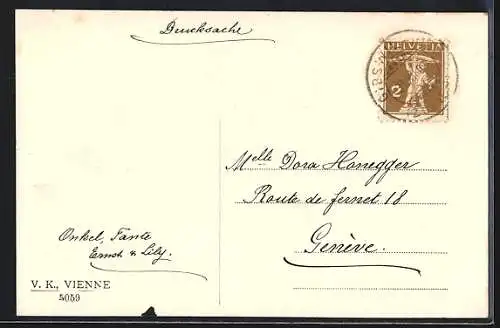 Drucksache
HELVETIA
2
Melle Dora Honegger
Route de fernet 18
Genève.
Onkel, Tante
Ernst & Lily.
V. K., VIENNE
5059